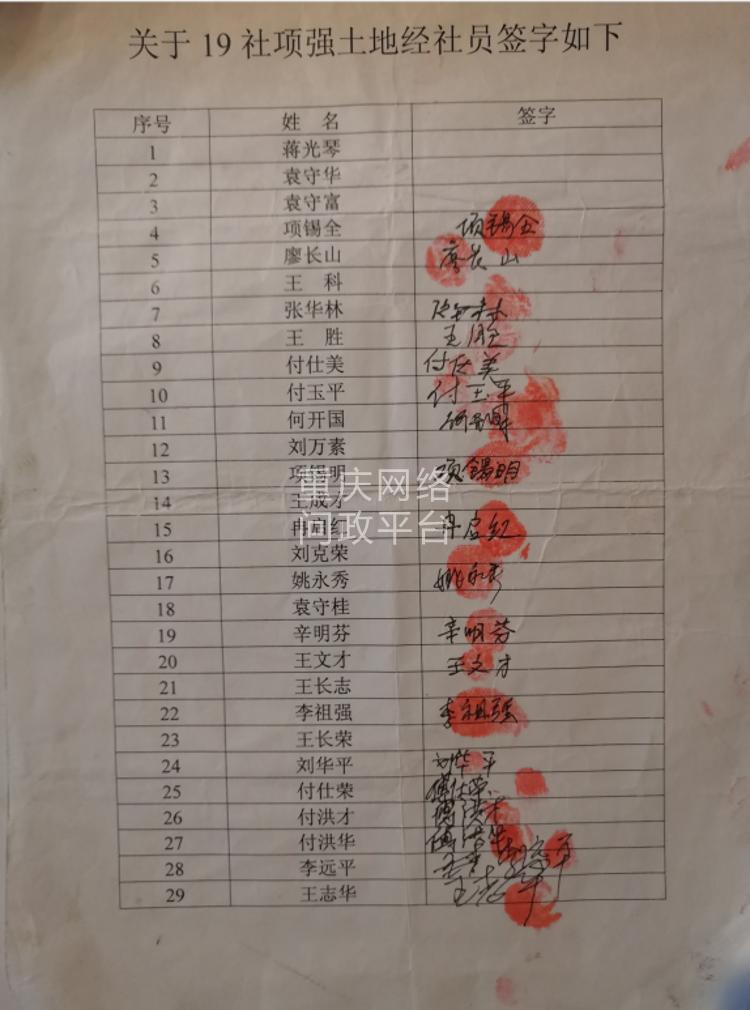 关于 19 社项强土地经社员签字如下
序号 姓 名 签字
1 蒋光琴
2 袁守华
3 袁守富
4 项锡全 项锡全
5 廖长山 廖长山
6 王 科
7 张华林
8 王 胜 王胜
9 付仕美 付仕美
10 付玉平 付玉平
11 何开国
12 刘万素
13 项锡明 项锡明
14 王成才
重庆网络
问政平台
15 冉启红 冉启红
16 刘克荣
17 姚永秀 姚永秀
18 袁守桂
19 辛明芬 辛明芬
20 王文才 王文才
21 王长志
22 李祖强 李祖强
23 王长荣
24 刘华平 刘华平
25 付仕荣 傅仕荣
26 付洪才 傅洪才
27 付洪华 傅洪华
28 李远平
29 王志华